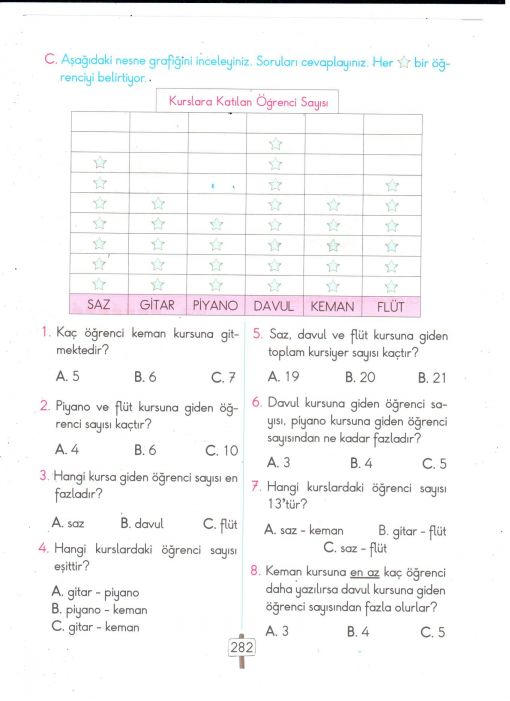 C. Aşağıdaki nesne grafiğini inceleyiniz. Soruları cevaplayınız. Her ☆ bir öğ-
renciyi belirtiyor.
Kurslara Katılan Öğrenci Sayısı
SAZ GİTAR PİYANO DAVUL KEMAN FLÜT
1. Kaç öğrenci keman kursuna git-
mektedir?
A. 5 B. 6 C. 7
2. Piyano ve flüt kursuna giden öğ-
renci sayısı kaçtır?
A. 4 B. 6 C. 10
3. Hangi kursa giden öğrenci sayısı en
fazladır?
A. saz B. davul C. flüt
4. Hangi kurslardaki öğrenci sayısı
eşittir?
A. gitar - piyano
B. piyano - keman
C. gitar - keman
5. Saz, davul ve flüt kursuna giden
toplam kursiyer sayısı kaçtır?
A. 19 B. 20 B. 21
6. Davul kursuna giden öğrenci sa-
yısı, piyano kursuna giden öğrenci
sayısından ne kadar fazladır?
A. 3 B. 4 C. 5
7. Hangi kurslardaki öğrenci sayısı
13'tür?
A. saz - keman B. gitar - flüt
C. saz - flüt
8. Keman kursuna en az kaç öğrenci
daha yazılırsa davul kursuna giden
öğrenci sayısından fazla olurlar?
A. 3 B. 4 C. 5
282